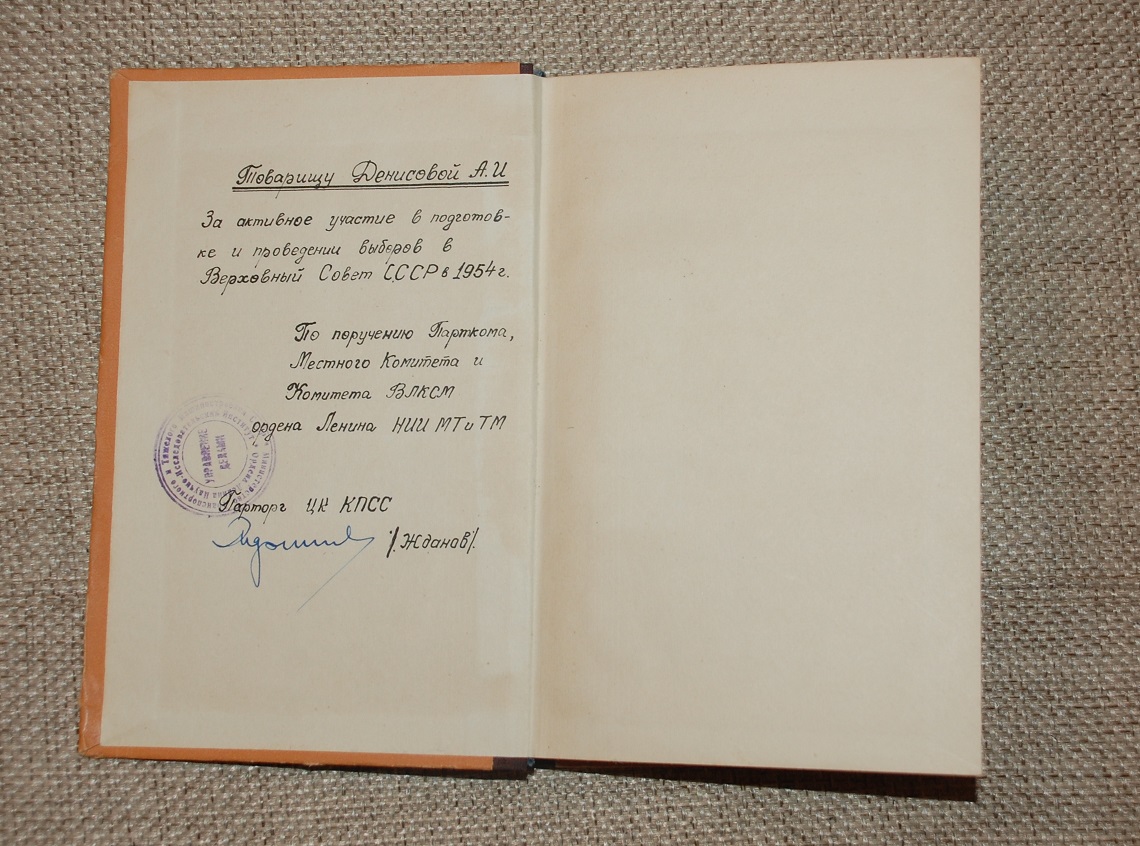 Товарищу Денисовой А.И
За активное участие в подготов-
ке и проведении выборов в
Верховный Совет СССР в 1954 г.
По поручению Парткома,
Местного Комитета и
Комитета ВЛКСМ
ордена Ленина НИИ МТ и ТМ
УПРАВЛЕНИЕ
ДЕЛАМИ
Парторг ЦК КПСС
/.Жданов/.